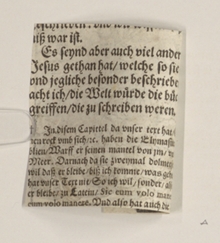 niß war ist.
Es seynd aber auch viel ander
Jesus gethan hat/ welche so sie
ond jegliche besonder beschriebe
acht ich/ die Welt würde die bü
greiffen/ die zu schreiben weren.
In disem Capittel da vnser text hat/
haben die
blien/ Warff er seinen mantel von jm/
Meer. Darnach da sie zweymal
wil daß er bleibe/ biß ich komme/ was geh
hat vnser Text nit: So ich wil/ sonder/ al
er bleibe/ zu Latein/ Sic eum volo man
eum volo manere. Vnd also hat auch die